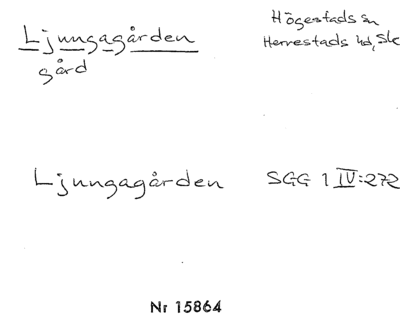 Ljungagården
gård
Högestads sn
Herrestads hd, Sk
Ljungagården
SGG 1 IV:272
Nr 15864